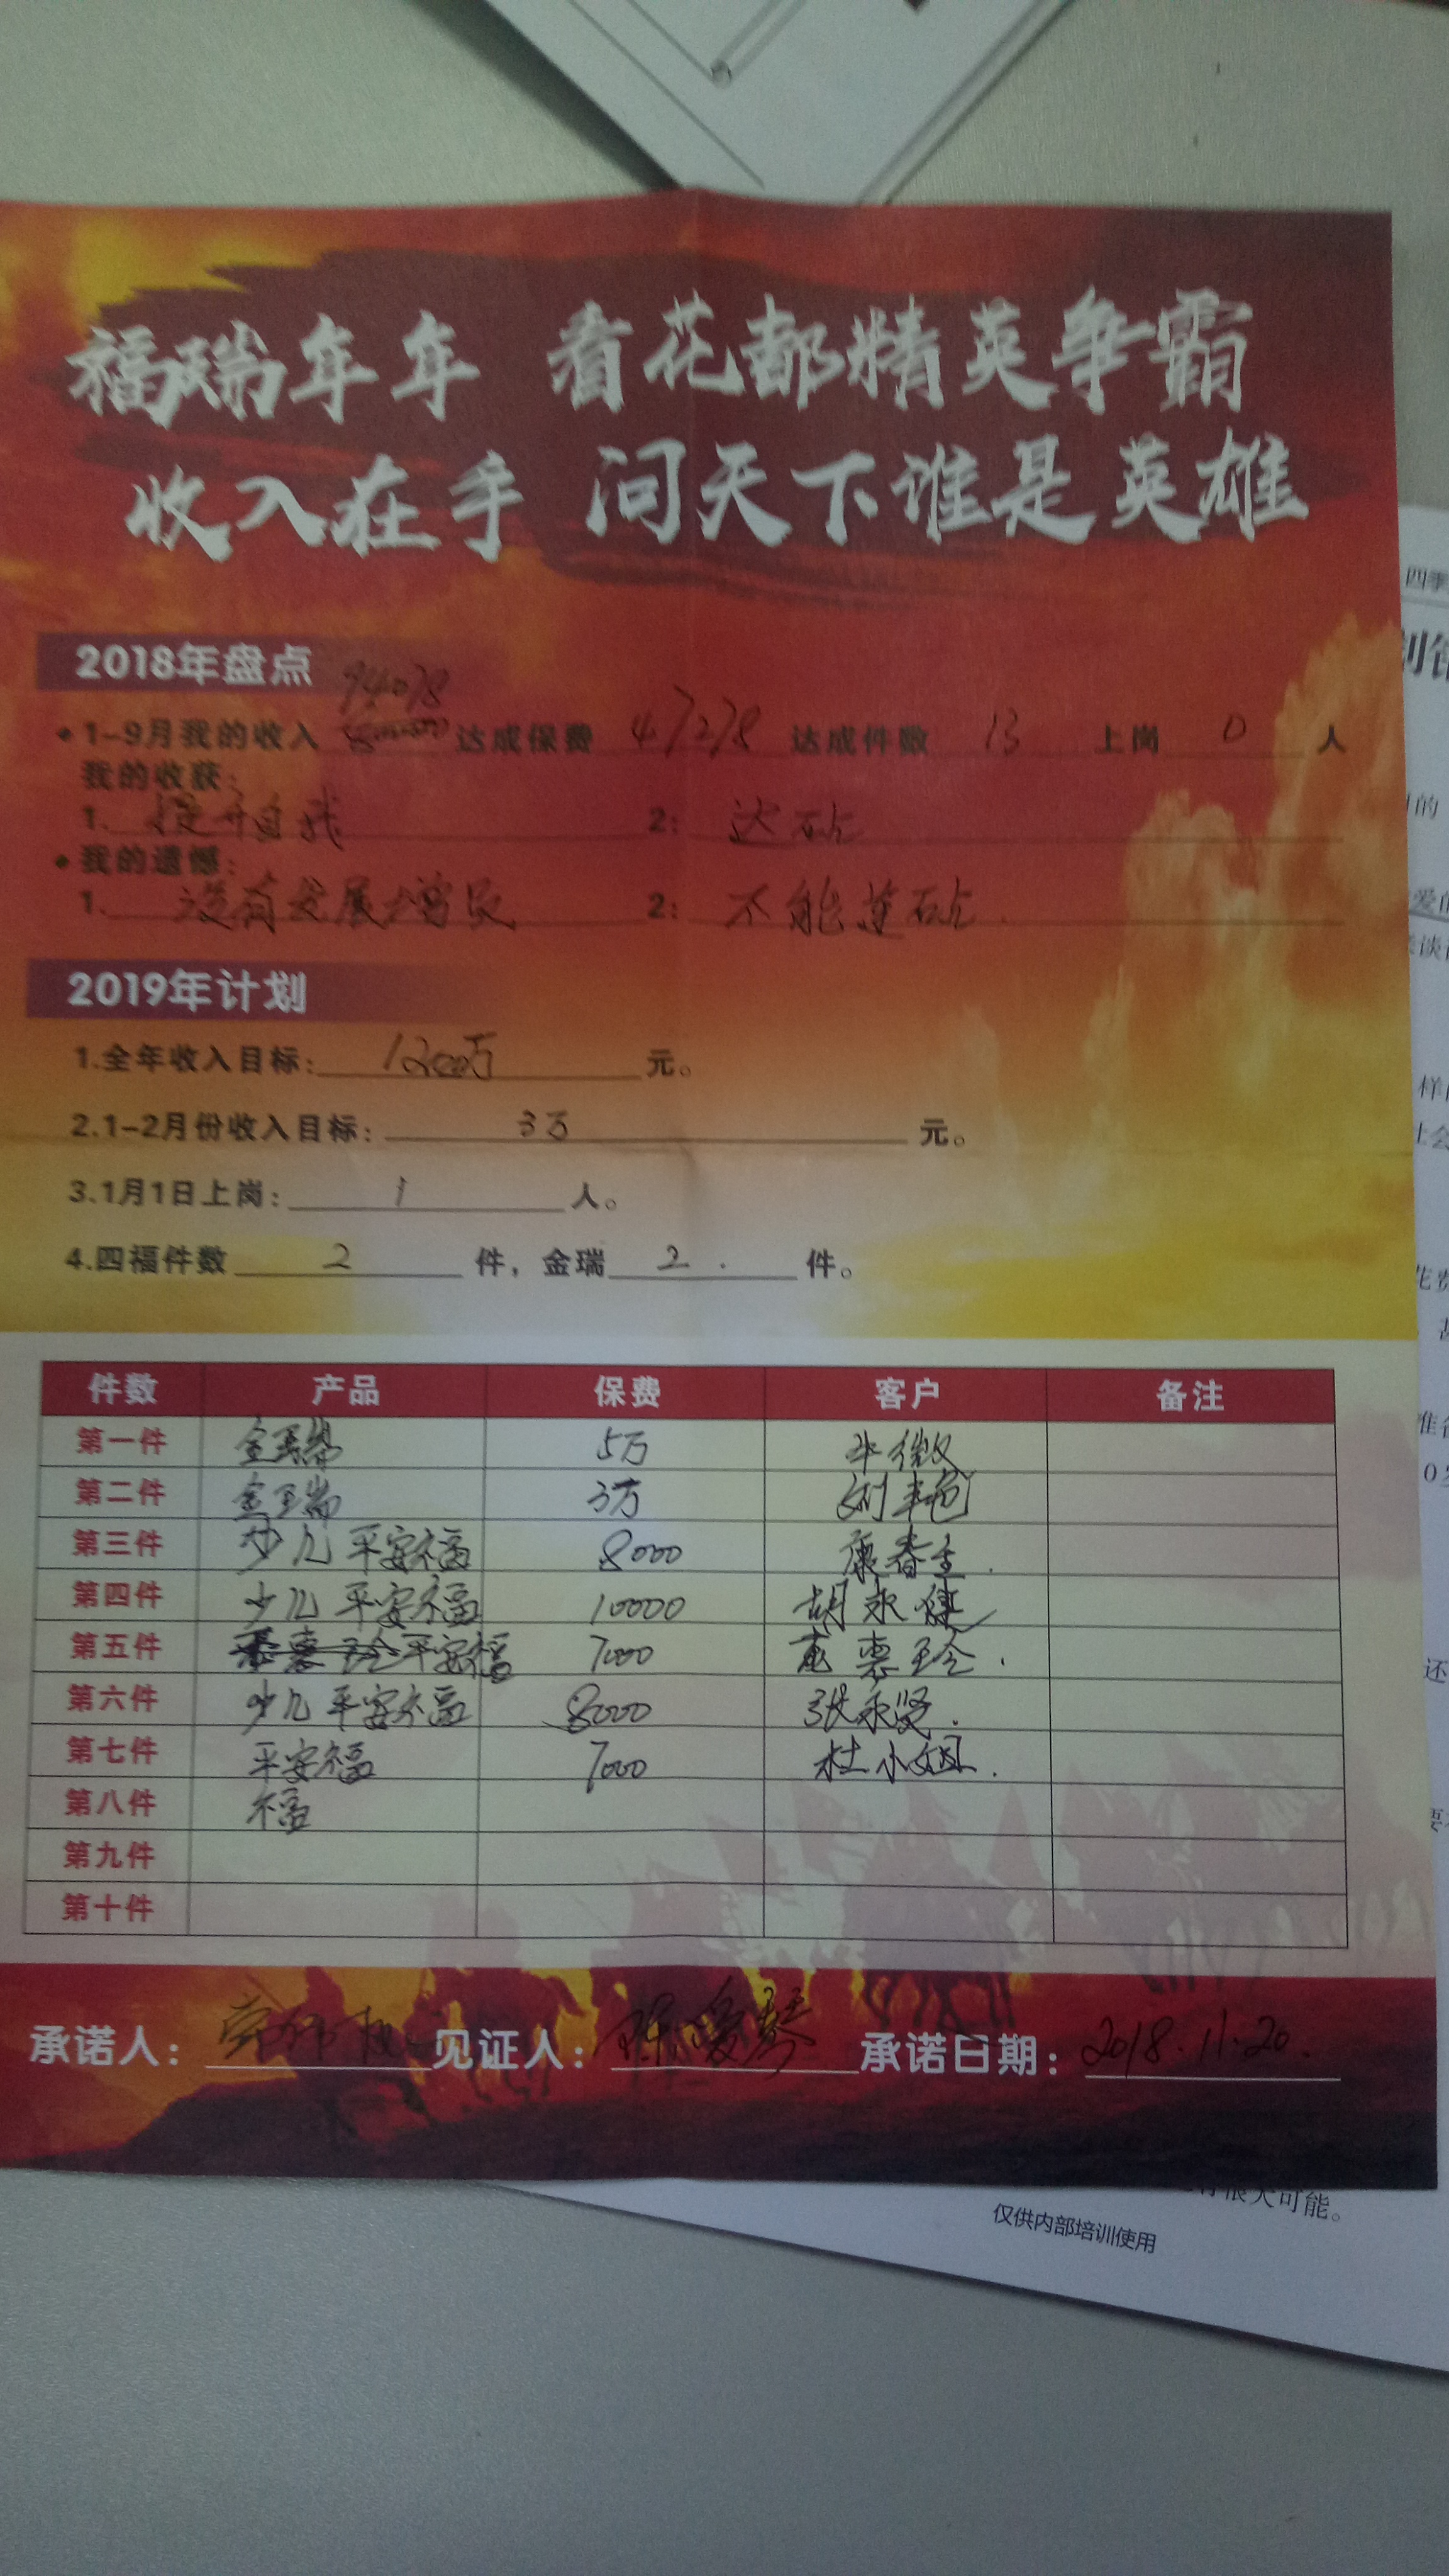 福瑞年年 看花都精英争霸
收入在手 问天下谁是英雄
2018年盘点
94078
• 1-9月我的收入 达成保费 47278 达成件数 13 上岗 0 人
我的收获:
1. 提升自我 2: 达砧
• 我的遗憾:
1. 没有发展增员 2: 不能连砧.
2019年计划
1.全年收入目标: 1200万 元。
2.1-2月份收入目标: 3万 元。
3.1月1日上岗: 1 人。
4.四福件数 2 件, 金瑞 2. 件。
件数 产品 保费 客户 备注
第一件 金玉瑞 5万
第二件 金玉瑞 3万 刘
第三件 少儿平安福 8000 康春
第四件 少儿平安福 10000 胡永
第五件 平安福 7000 惠玲.
第六件 少儿平安福 8000 张永贤.
第七件 平安福 7000 杜小姐.
第八件 福
第九件
第十件
承诺人: 见证人: 承诺日期: 2018.11.20.
很大可能。
仅供内部培训使用
四季
划
的
爱
谈
样
社会
花费
准备
还
要